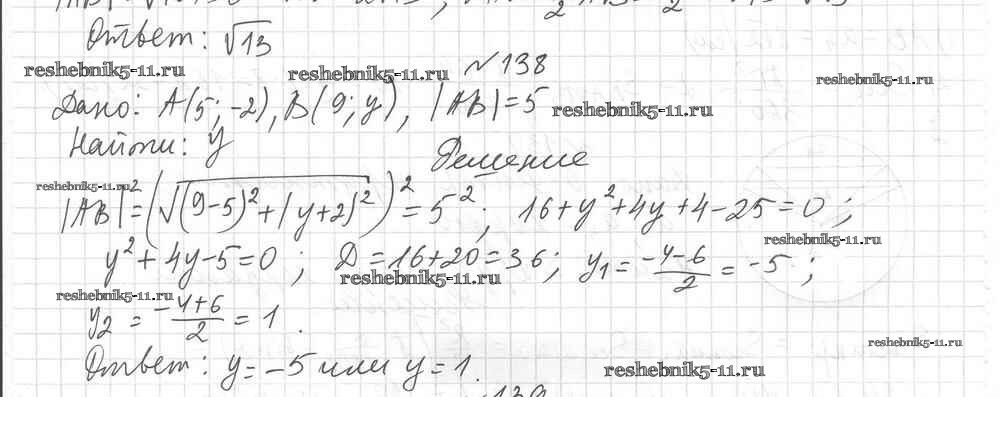 Ответ: √13
№138
Дано: A(5; -2), B(9; y), |AB|=5
Найти: y
Решение
|AB|²=(√(9-5)²+(y+2)²)²=5²; 16+y²+4y+4-25=0;
y²+4y-5=0; D=16+20=36; y₁=(-4-6)/2=-5;
y₂=(-4+6)/2=1.
Ответ: y=-5 или y=1.
139
reshebnik5-11.ru
reshebnik5-11.ru
reshebnik5-11.ru
reshebnik5-11.ru
reshebnik5-11.ru
reshebnik5-11.ru
reshebnik5-11.ru
reshebnik5-11.ru
reshebnik5-11.ru
reshebnik5-11.ru